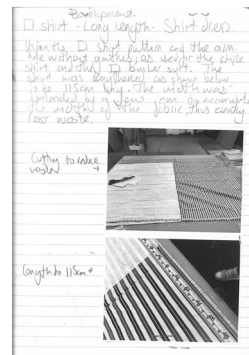 Development.
□ shirt - Long length - Shirt dress.
Using the □ shirt pattern and the arm
hole without gussets; as used for the stripe
shirt and the □ shirt. The
shirt was lengthened as shown below
to be 115cm long. The width was
extended by a few cm to accomodate
the width of the fabric, thus creating
less waste.
Cutting to reduce
waste →
length to 115cm →